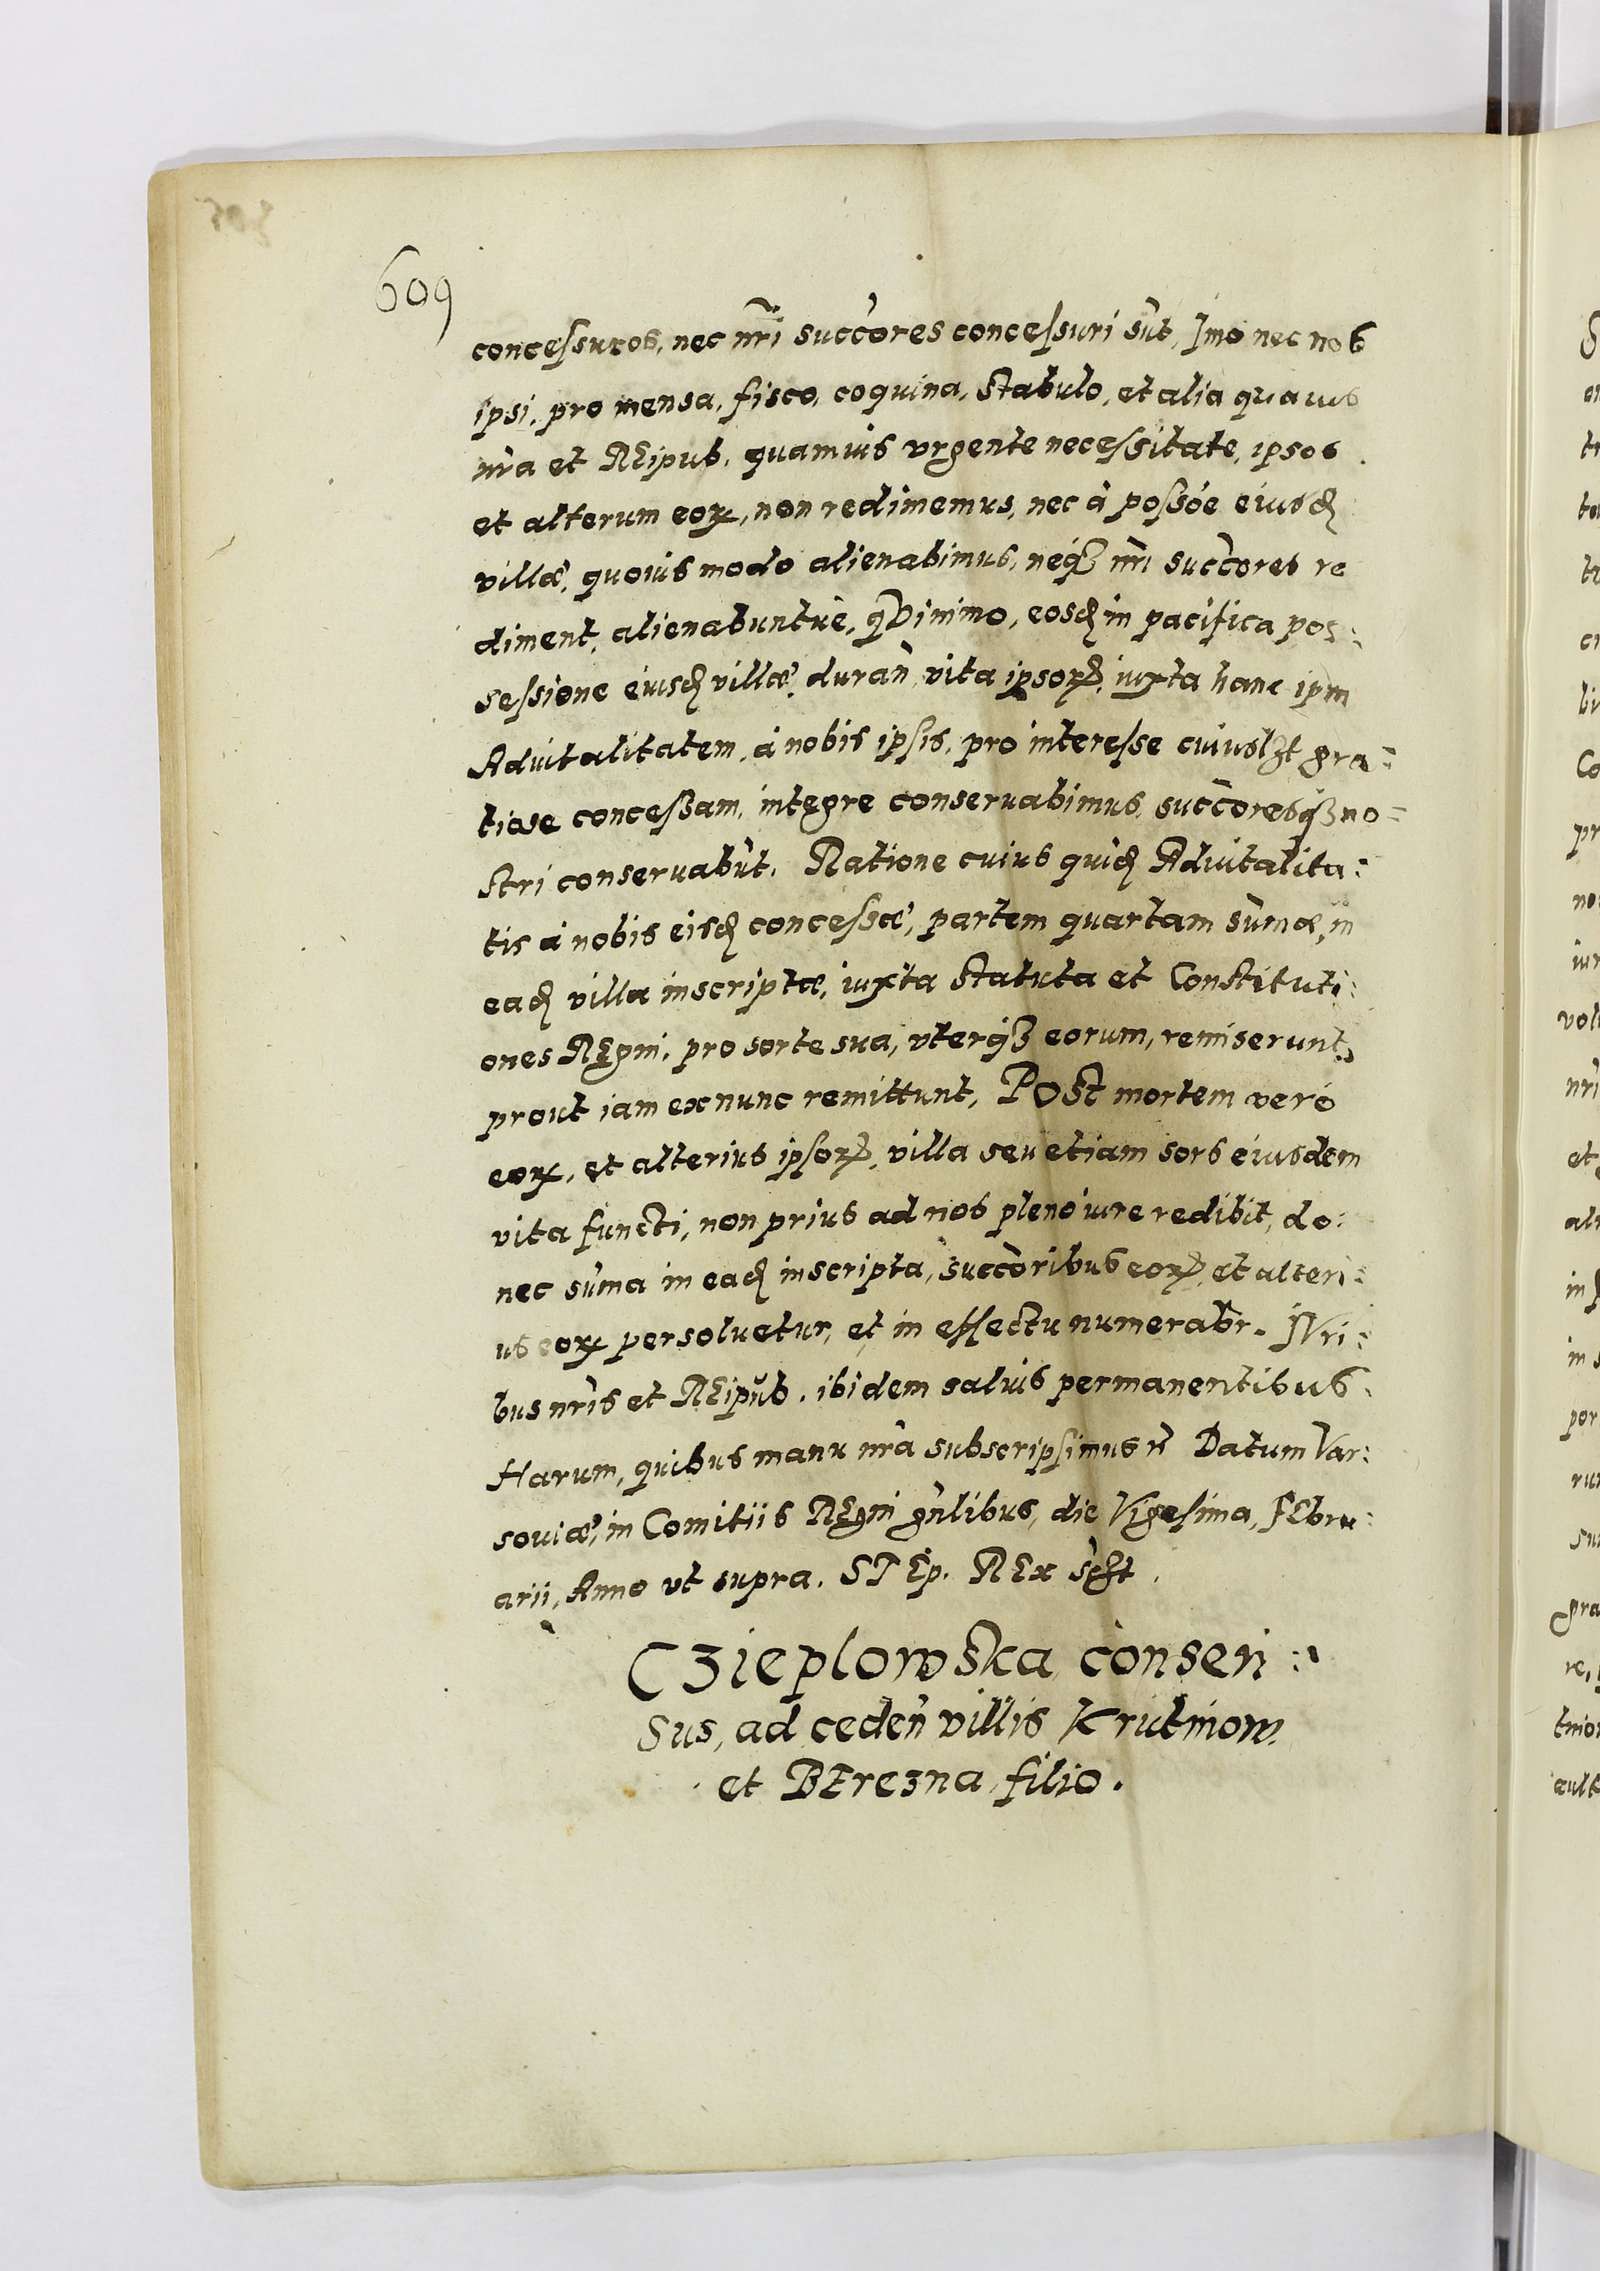 609
concessuros, nec nr̃i succores concessuri sũt, Imo nec nos
ipsi, pro mensa, fisco, coquina, Stabulo, et alia quavis
nr̃a et REipub. quamvis vrgente necessitate, ipsos
et alterum eoꝝ, non redimemus, nec à possóe eiusđ
villæ, quovis modo alienabimus, neqꝫ nr̃i succores re
diment, alienabuntuè, qđimimo, eosđ in pacifica pos:
sessione eiusđ villæ, durañ vita ipsoꝝ, iuxta hanc ipm
Advitalitatem, à nobis ipsis, pro interesse cuiuslꝫt gra:
tiose concessam, integre conseruabimus, succoresqꝫ no=
stri conseruabũt. Ratione cuius quiđ Advitalita:
tis à nobis eisđ concessæ, partem quartam sum̃æ, in
eađ villa inscriptæ, iuxta Statuta et Constituti:
ones REgni, pro sorte sua, vterqꝫ eorum, remiserunt,
prout iam ex nunc remittunt, POSt mortem verò
eoꝝ, et alterius ipsoꝝ, villa seu etiam sors eiusdem
vita functi, non prius ad nos pleno iure redibit, do:
nec sum̃a in eađ inscripta, succoribus eoꝝ, et alteri:
us eoꝝ persoluetur, et in effectu numerabr̃. IVri:
bus nr̃is et REipub. ibidem salvis permanentibus.
Harum, quibus manu nr̃a subscripsimus ꝛc̃ Datum Var:
soviæ, in Comitiis REgni gñlibus, die Vigesima, FEbru:
arii, Anno vt supra. STEp. REx sꝫt.
Cʒieplowska consen:
sus, ad cedeñ villis Krutniow.
et BErezna filio.